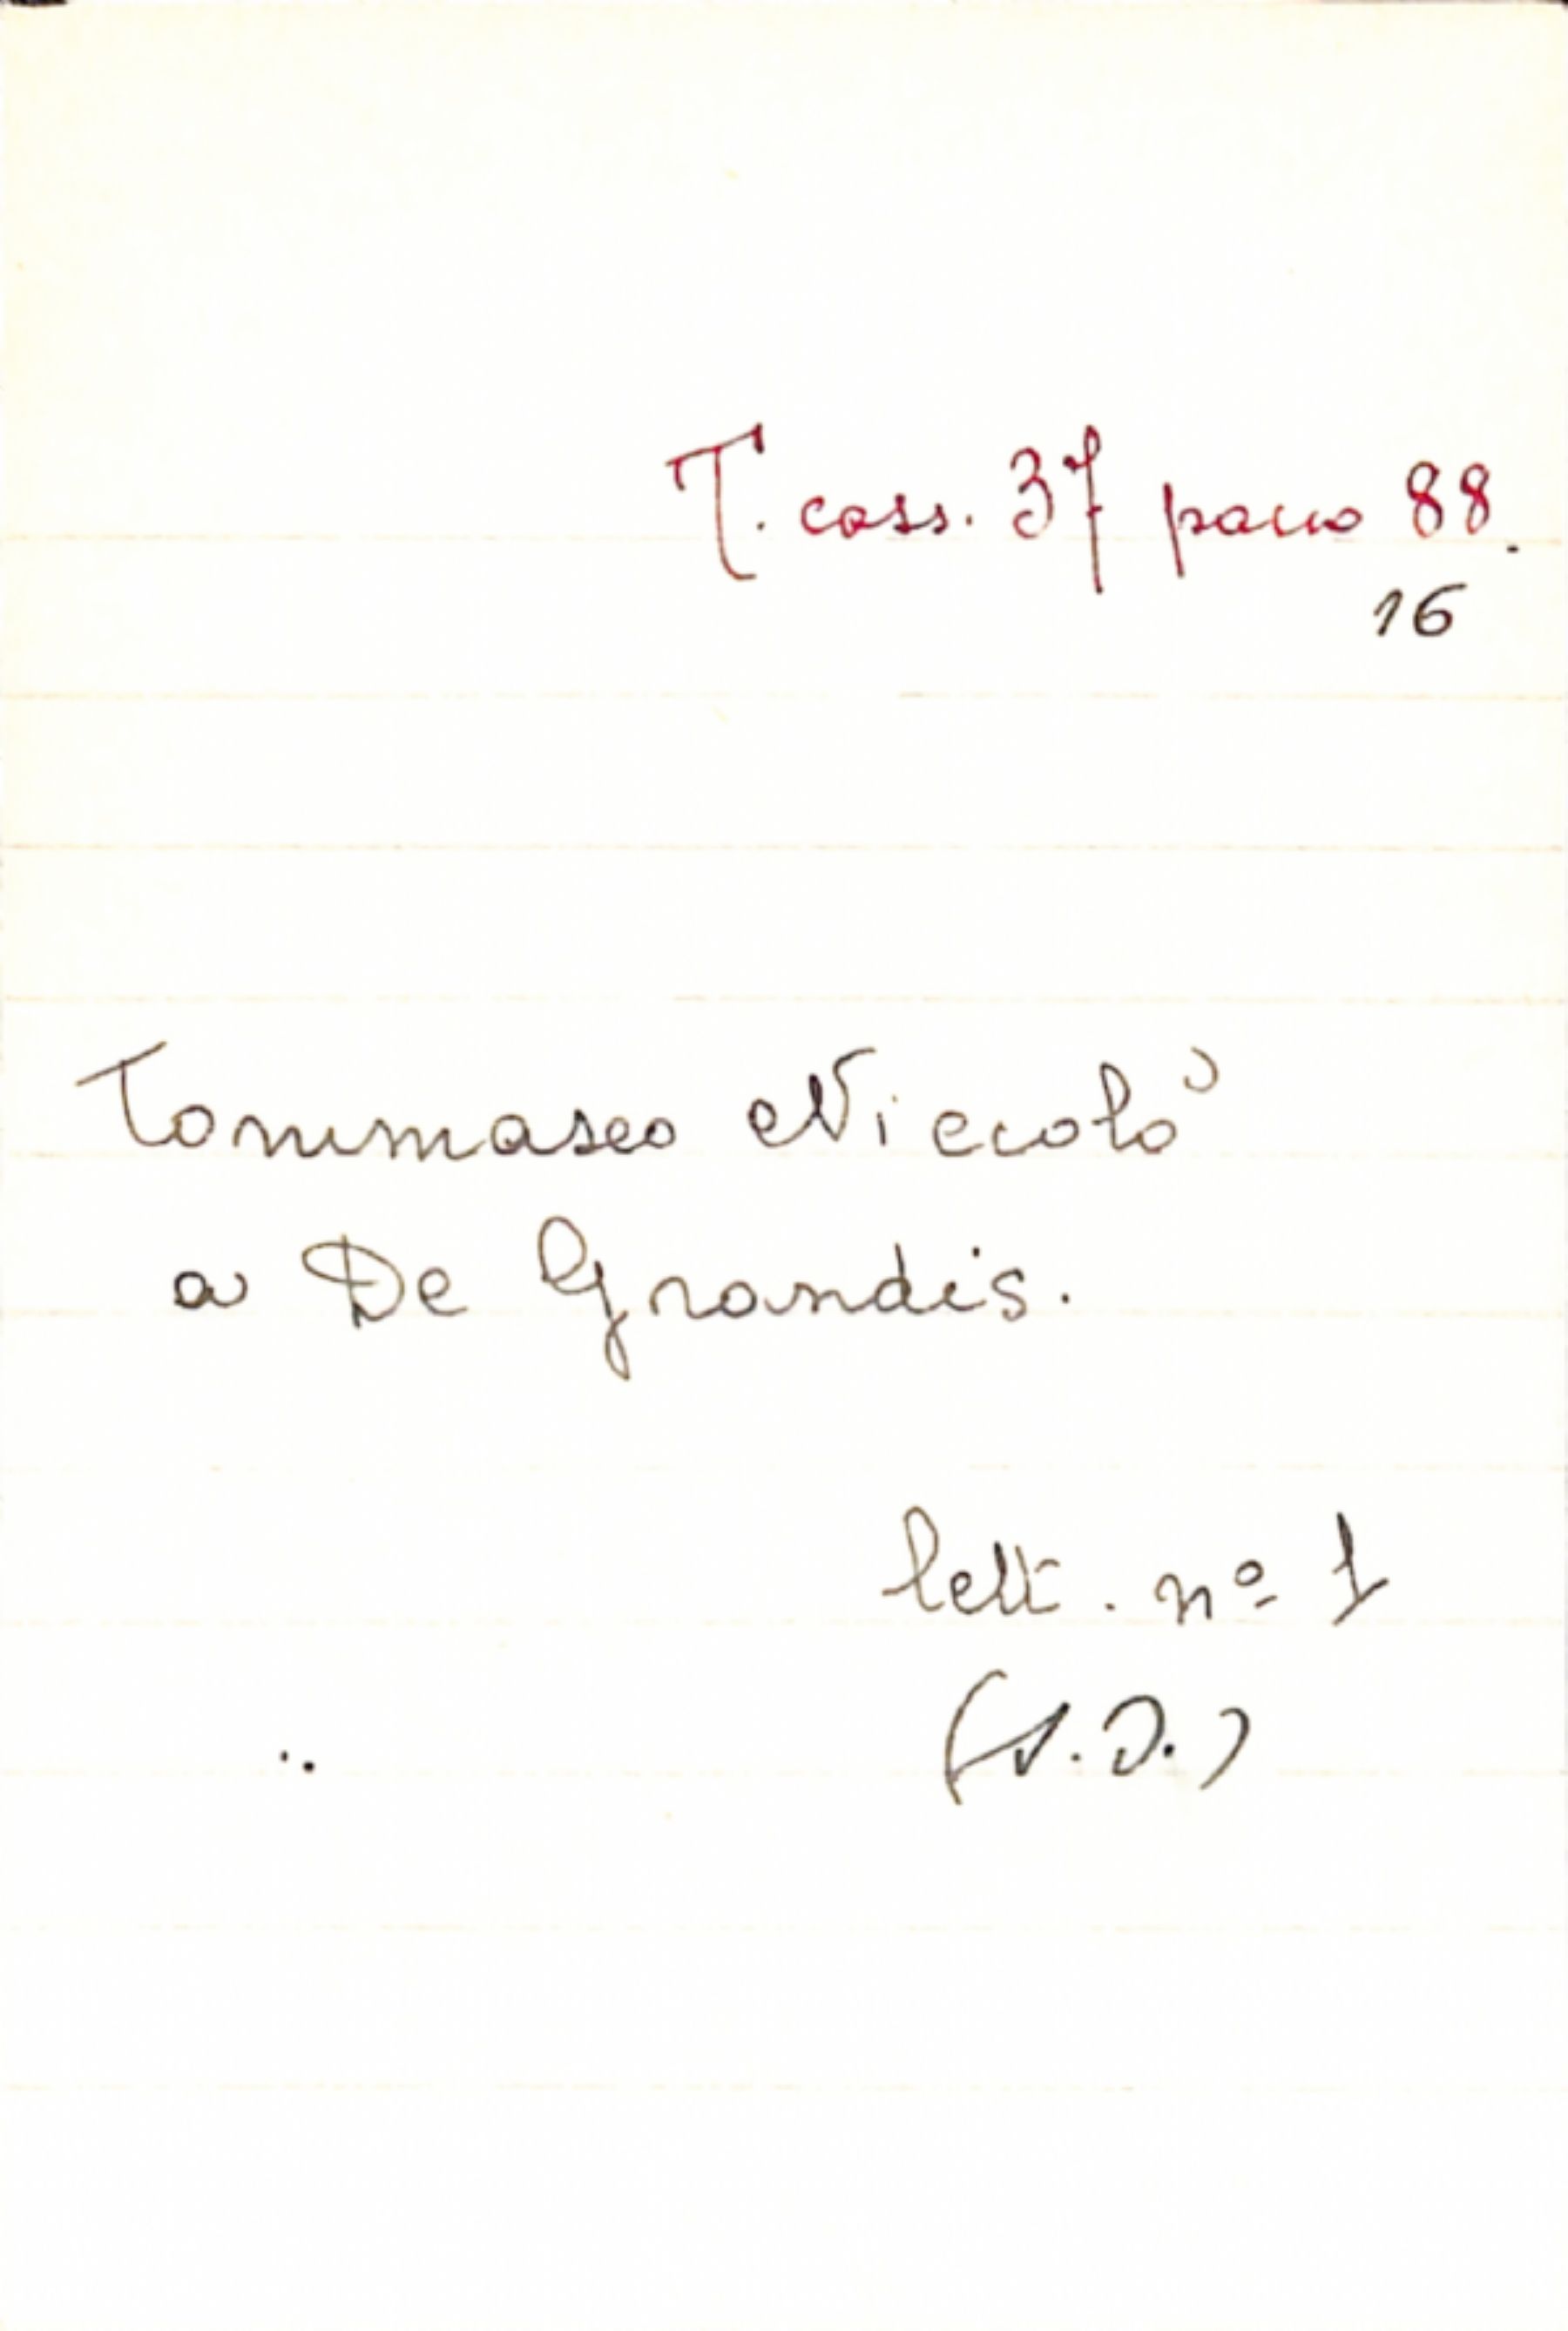 T. cass. 37 pacco 88.
16
Tommaseo Niccolò
a De Grandis.
lett. nº 1
(s.D.)